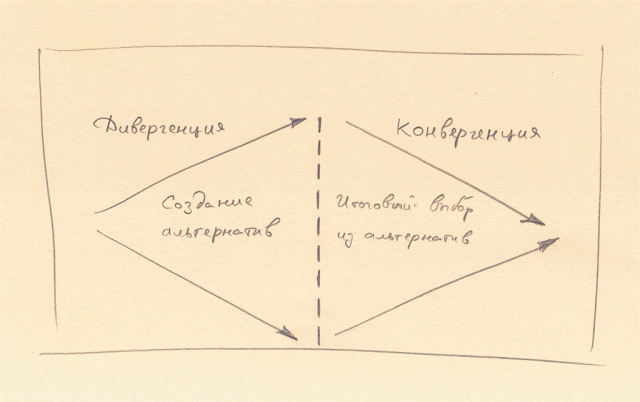 Дивергенция
Создание
альтернатив
Конвергенция
Итоговый выбор
из альтернатив